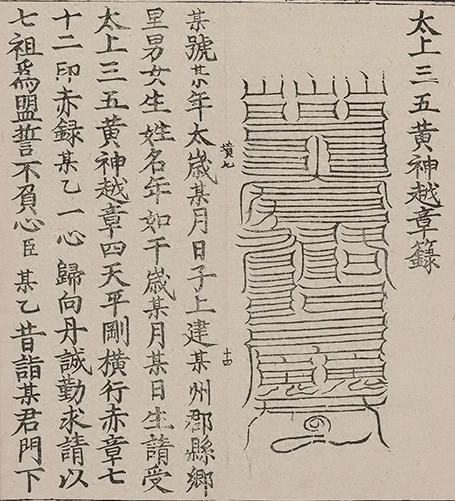 太上三五黃神越章籙
某號某年太歲某月日子上建某州郡縣鄉
里男女生姓名年如干歲某月某日生請受
太上三五黃神越章四天平剛橫行赤章七
十二印赤籙某乙一心歸向丹誠勤求請以
七祖爲盟誓不負心臣某乙昔詣某君門下